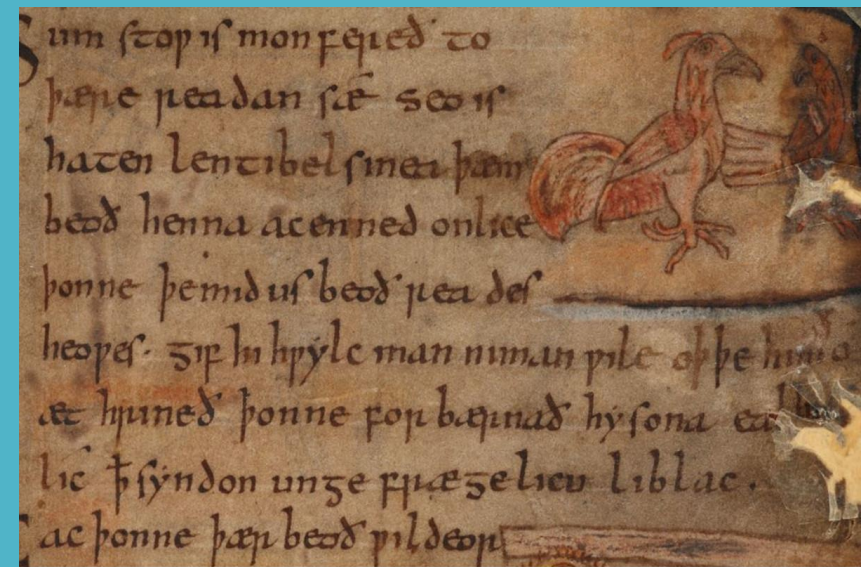 Sum stoƿ is mon fereð to
þære readan sæ seo is
haten lentibelsinea þæm
beoð henna acenned onlice
þonne þe mid us beoð rea des
heoƿes· gif hi hƿylc man niman ƿile oþþe
æt hrineð þonne for bærnað hy sona eal
lic ꝥ syndon unge frægelicu liblac.
ac þonne þær beoð ƿildeor